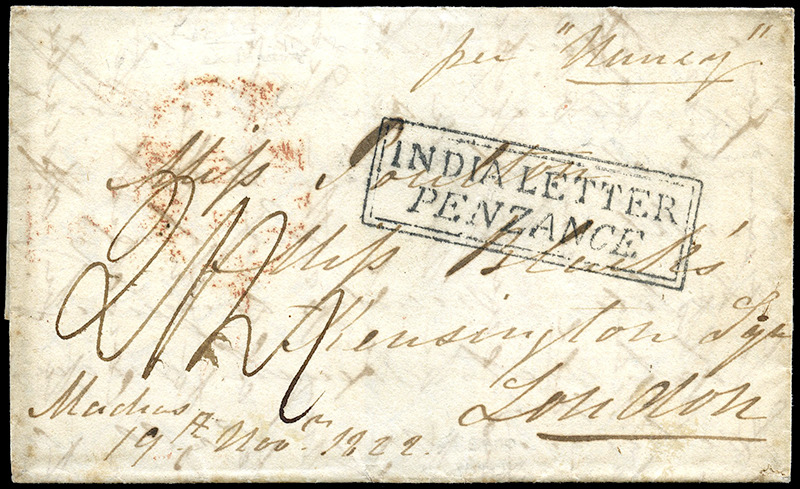 per "Nancy"
INDIA LETTER
PENZANCE
Miss
Miss Black's
Kensington Sqr
London
Madras
19th Novr. 1822.